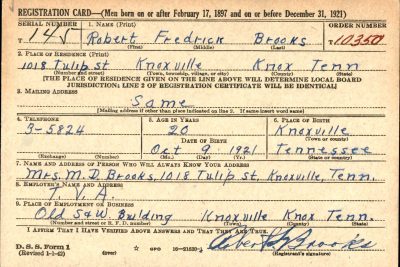 REGISTRATION CARD—(Men born on or after February 17, 1897 and on or before December 31, 1921)
SERIAL NUMBER 1. NAME (Print) ORDER NUMBER
T 145 Robert Fredrick Brooks T10350
(First) (Middle) (Last)
2. PLACE OF RESIDENCE (Print)
1018 Tulip St Knoxville Knox Tenn
(Number and street) (Town, township, village, or city) (County) (State)
[THE PLACE OF RESIDENCE GIVEN ON THE LINE ABOVE WILL DETERMINE LOCAL BOARD
JURISDICTION; LINE 2 OF REGISTRATION CERTIFICATE WILL BE IDENTICAL]
3. MAILING ADDRESS
Same
[Mailing address if other than place indicated on line 2. If same insert word same]
4. TELEPHONE 5. AGE IN YEARS 6. PLACE OF BIRTH
3-5824 20 Knoxville
DATE OF BIRTH (Town or county)
Oct 9 1921 Tennessee
(Exchange) (Number) (Mo.) (Day) (Yr.) (State or country)
7. NAME AND ADDRESS OF PERSON WHO WILL ALWAYS KNOW YOUR ADDRESS
Mrs. M. D. Brooks, 1018 Tulip St, Knoxville, Tenn.
8. EMPLOYER'S NAME AND ADDRESS
T. V. A.
9. PLACE OF EMPLOYMENT OR BUSINESS
Old S&W Building Knoxville Knox Tenn.
(Number and street or R. F. D. number) (Town) (County) (State)
I AFFIRM THAT I HAVE VERIFIED ABOVE ANSWERS AND THAT THEY ARE TRUE.
D. S. S. Form 1 GPO Robert F Brooks
(Revised 1-1-42) (Registrant's signature)